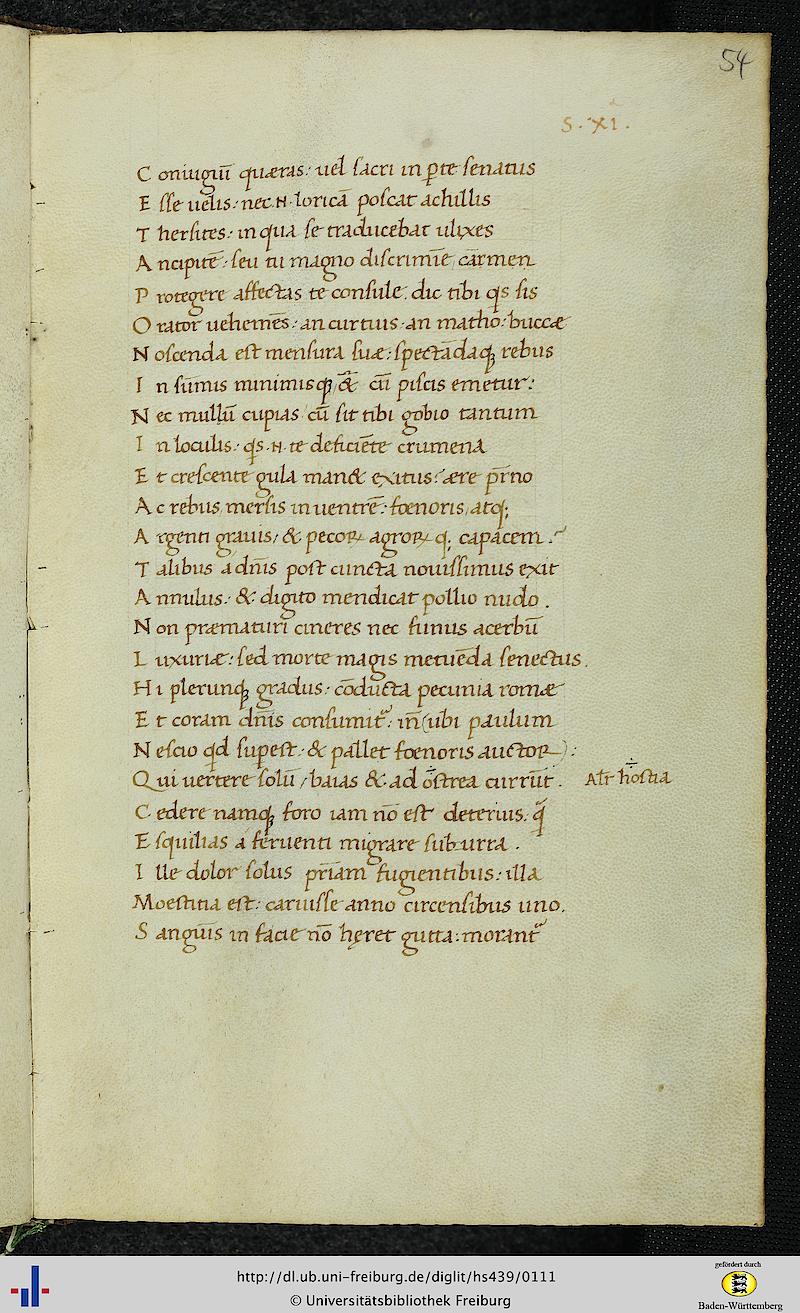 54
S. XI.
C oniugiū quæras: uel sacri in ꝑte senatus
E sse uelis: nec .N. loricā poscat achillis
T hersites: in qua se traducebat ulixes
A ncipitē: seu tu magno discrimīe carmen
P rotegere affectas te consule. dic tibi qͥs sis
O rator uehemēs: an curtius. an matho: buccæ
N oscenda est mensura suæ: spectādaqꝫ rebus
I n sūmis minimisqꝫ, & cū piscis emetur:
N ec mullū cupias cū sit tibi gobio tantum
I n loculis: qͥs .N. te deficiēte crumena
E t crescente gula man& exitus: ære pr̄no
A c rebus mersis in uentrē: fœnoris, atqꝫ
A rgenti grauis, & pecoꝝ agroꝝ qꝫ capacem.
T alibus a dn̄is post cuncta nouissimus exit
A nnulus: & digito mendicat pollio nudo.
N on præmaturi cineres nec funus acerbū
L uxuriæ: sed morte magis metuēda senectus.
H i plerunqꝫ gradus: cōducta pecunia romæ
E t coram dn̄is consumit᷑: in̄ (ubi paulum
N escio qͥd supest: & pallet fœnoris auctor):
Q ui uertere solū, baias & ad ostrea currūt. Alr̄ hostia
C edere namqꝫ foro iam nō est deterius. qͣ̄
E squilias a feruenti migrare suburra.
I lle dolor solus pr̄iam fugientibus: illa
Moestitia est: caruisse anno circensibus uno.
S anguīs in facie nō hęret gutta: morant᷑
http://dl.ub.uni-freiburg.de/diglit/hs439/0111
© Universitätsbibliothek Freiburg
gefördert durch
Baden-Württemberg